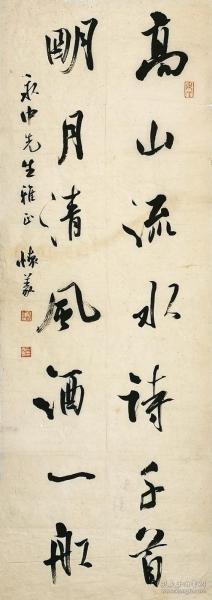 高山流水诗千首
明月清风酒一船
永中先生雅正 怀义